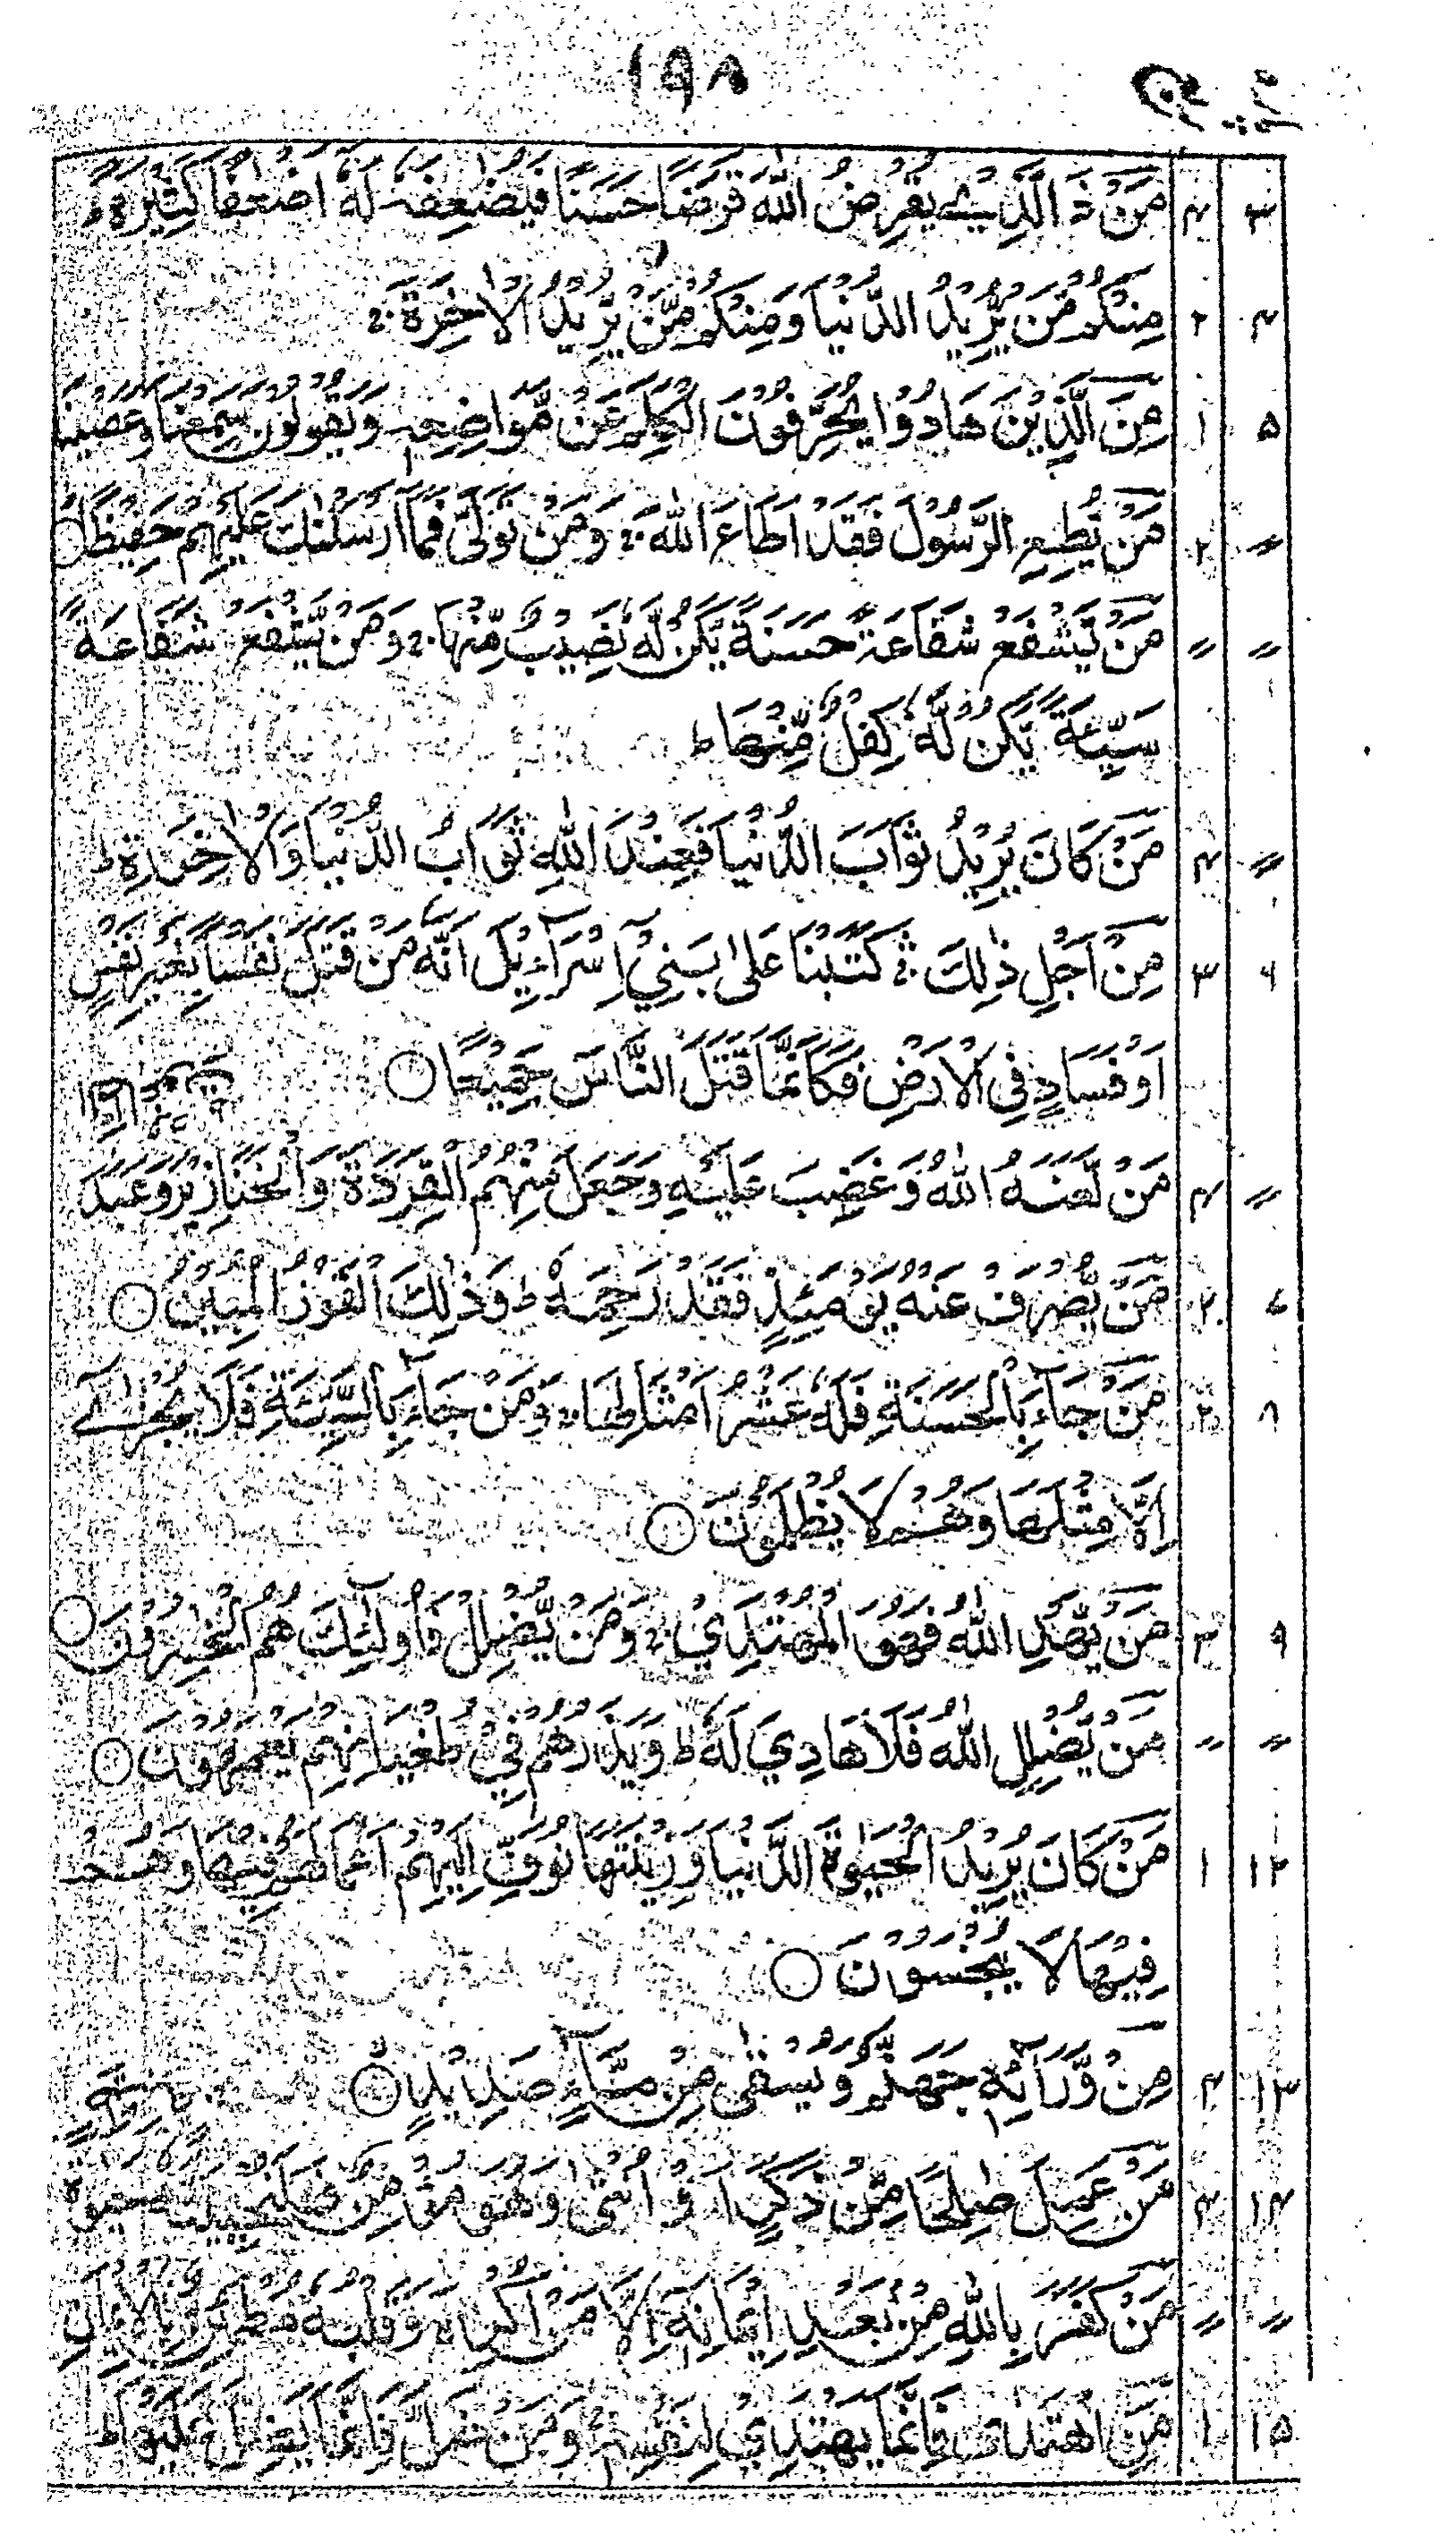 ۱۹۸
۳ ۴ مَنْ ذَا الَّذِيْ يُقْرِضُ اللّٰهَ قَرْضًا حَسَنًا فَيُضٰعِفَهٗ لَهٗٓ اَضْعَافًا كَثِيْرَةً ط
۴ ۲ مِنْكُمْ مَّنْ يُّرِيْدُ الدُّنْيَا وَمِنْكُمْ مَّنْ يُّرِيْدُ الْاٰخِرَةَ ج
۵ ۱ مِنَ الَّذِيْنَ هَادُوْا يُحَرِّفُوْنَ الْكَلِمَ عَنْ مَّوَاضِعِهٖ وَيَقُوْلُوْنَ سَمِعْنَا وَعَصَيْنَا
〃 ۲ مَنْ يُّطِعِ الرَّسُوْلَ فَقَدْ اَطَاعَ اللّٰهَ ج وَمَنْ تَوَلّٰى فَمَآ اَرْسَلْنٰكَ عَلَيْهِمْ حَفِيْظًا ○
〃 〃 مَنْ يَّشْفَعْ شَفَاعَةً حَسَنَةً يَّكُنْ لَّهٗ نَصِيْبٌ مِّنْهَا ج وَمَنْ يَّشْفَعْ شَفَاعَةً
سَيِّئَةً يَّكُنْ لَّهٗ كِفْلٌ مِّنْهَا ط
〃 ۴ مَنْ كَانَ يُرِيْدُ ثَوَابَ الدُّنْيَا فَعِنْدَ اللّٰهِ ثَوَابُ الدُّنْيَا وَالْاٰخِرَةِ ط
۶ ۳ مِنْ اَجْلِ ذٰلِكَ ج كَتَبْنَا عَلٰى بَنِيْٓ اِسْرَآءِيْلَ اَنَّهٗ مَنْ قَتَلَ نَفْسًا بِغَيْرِ نَفْسٍ
اَوْ فَسَادٍ فِى الْاَرْضِ فَكَاَنَّمَا قَتَلَ النَّاسَ جَمِيْعًا ○
〃 ۴ مَنْ لَّعَنَهُ اللّٰهُ وَغَضِبَ عَلَيْهِ وَجَعَلَ مِنْهُمُ الْقِرَدَةَ وَالْخَنَازِيْرَ وَعَبَدَ
۷ ۲ مَنْ يُّصْرَفْ عَنْهُ يَوْمَئِذٍ فَقَدْ رَحِمَهٗ ط وَذٰلِكَ الْفَوْزُ الْمُبِيْنُ ○
۸ ۲ مَنْ جَآءَ بِالْحَسَنَةِ فَلَهٗ عَشْرُ اَمْثَالِهَا ج وَمَنْ جَآءَ بِالسَّيِّئَةِ فَلَا يُجْزٰٓى
اِلَّا مِثْلَهَا وَهُمْ لَا يُظْلَمُوْنَ ○
۹ ۳ مَنْ يَّهْدِ اللّٰهُ فَهُوَ الْمُهْتَدِيْ ج وَمَنْ يُّضْلِلْ فَاُولٰٓئِكَ هُمُ الْخٰسِرُوْنَ ○
〃 〃 مَنْ يُّضْلِلِ اللّٰهُ فَلَا هَادِيَ لَهٗ ط وَيَذَرُهُمْ فِيْ طُغْيَانِهِمْ يَعْمَهُوْنَ ○
۱۲ ۱ مَنْ كَانَ يُرِيْدُ الْحَيٰوةَ الدُّنْيَا وَزِيْنَتَهَا نُوَفِّ اِلَيْهِمْ اَعْمَالَهُمْ فِيْهَا وَهُمْ
فِيْهَا لَا يُبْخَسُوْنَ ○
۱۳ ۴ مِنْ وَّرَآئِهٖ جَهَنَّمُ وَيُسْقٰى مِنْ مَّآءٍ صَدِيْدٍ ○
۱۴ ۴ مَنْ عَمِلَ صٰلِحًا مِّنْ ذَكَرٍ اَوْ اُنْثٰى وَهُوَ مُؤْمِنٌ فَلَنُحْيِيَنَّهٗ حَيٰوةً
〃 〃 مَنْ كَفَرَ بِاللّٰهِ مِنْ بَعْدِ اِيْمَانِهٖٓ اِلَّا مَنْ اُكْرِهَ وَقَلْبُهٗ مُطْمَئِنٌّ بِالْاِيْمَانِ
۱۵ ۱ مَنِ اهْتَدٰى فَاِنَّمَا يَهْتَدِيْ لِنَفْسِهٖ ج وَمَنْ ضَلَّ فَاِنَّمَا يَضِلُّ عَلَيْهَا ط